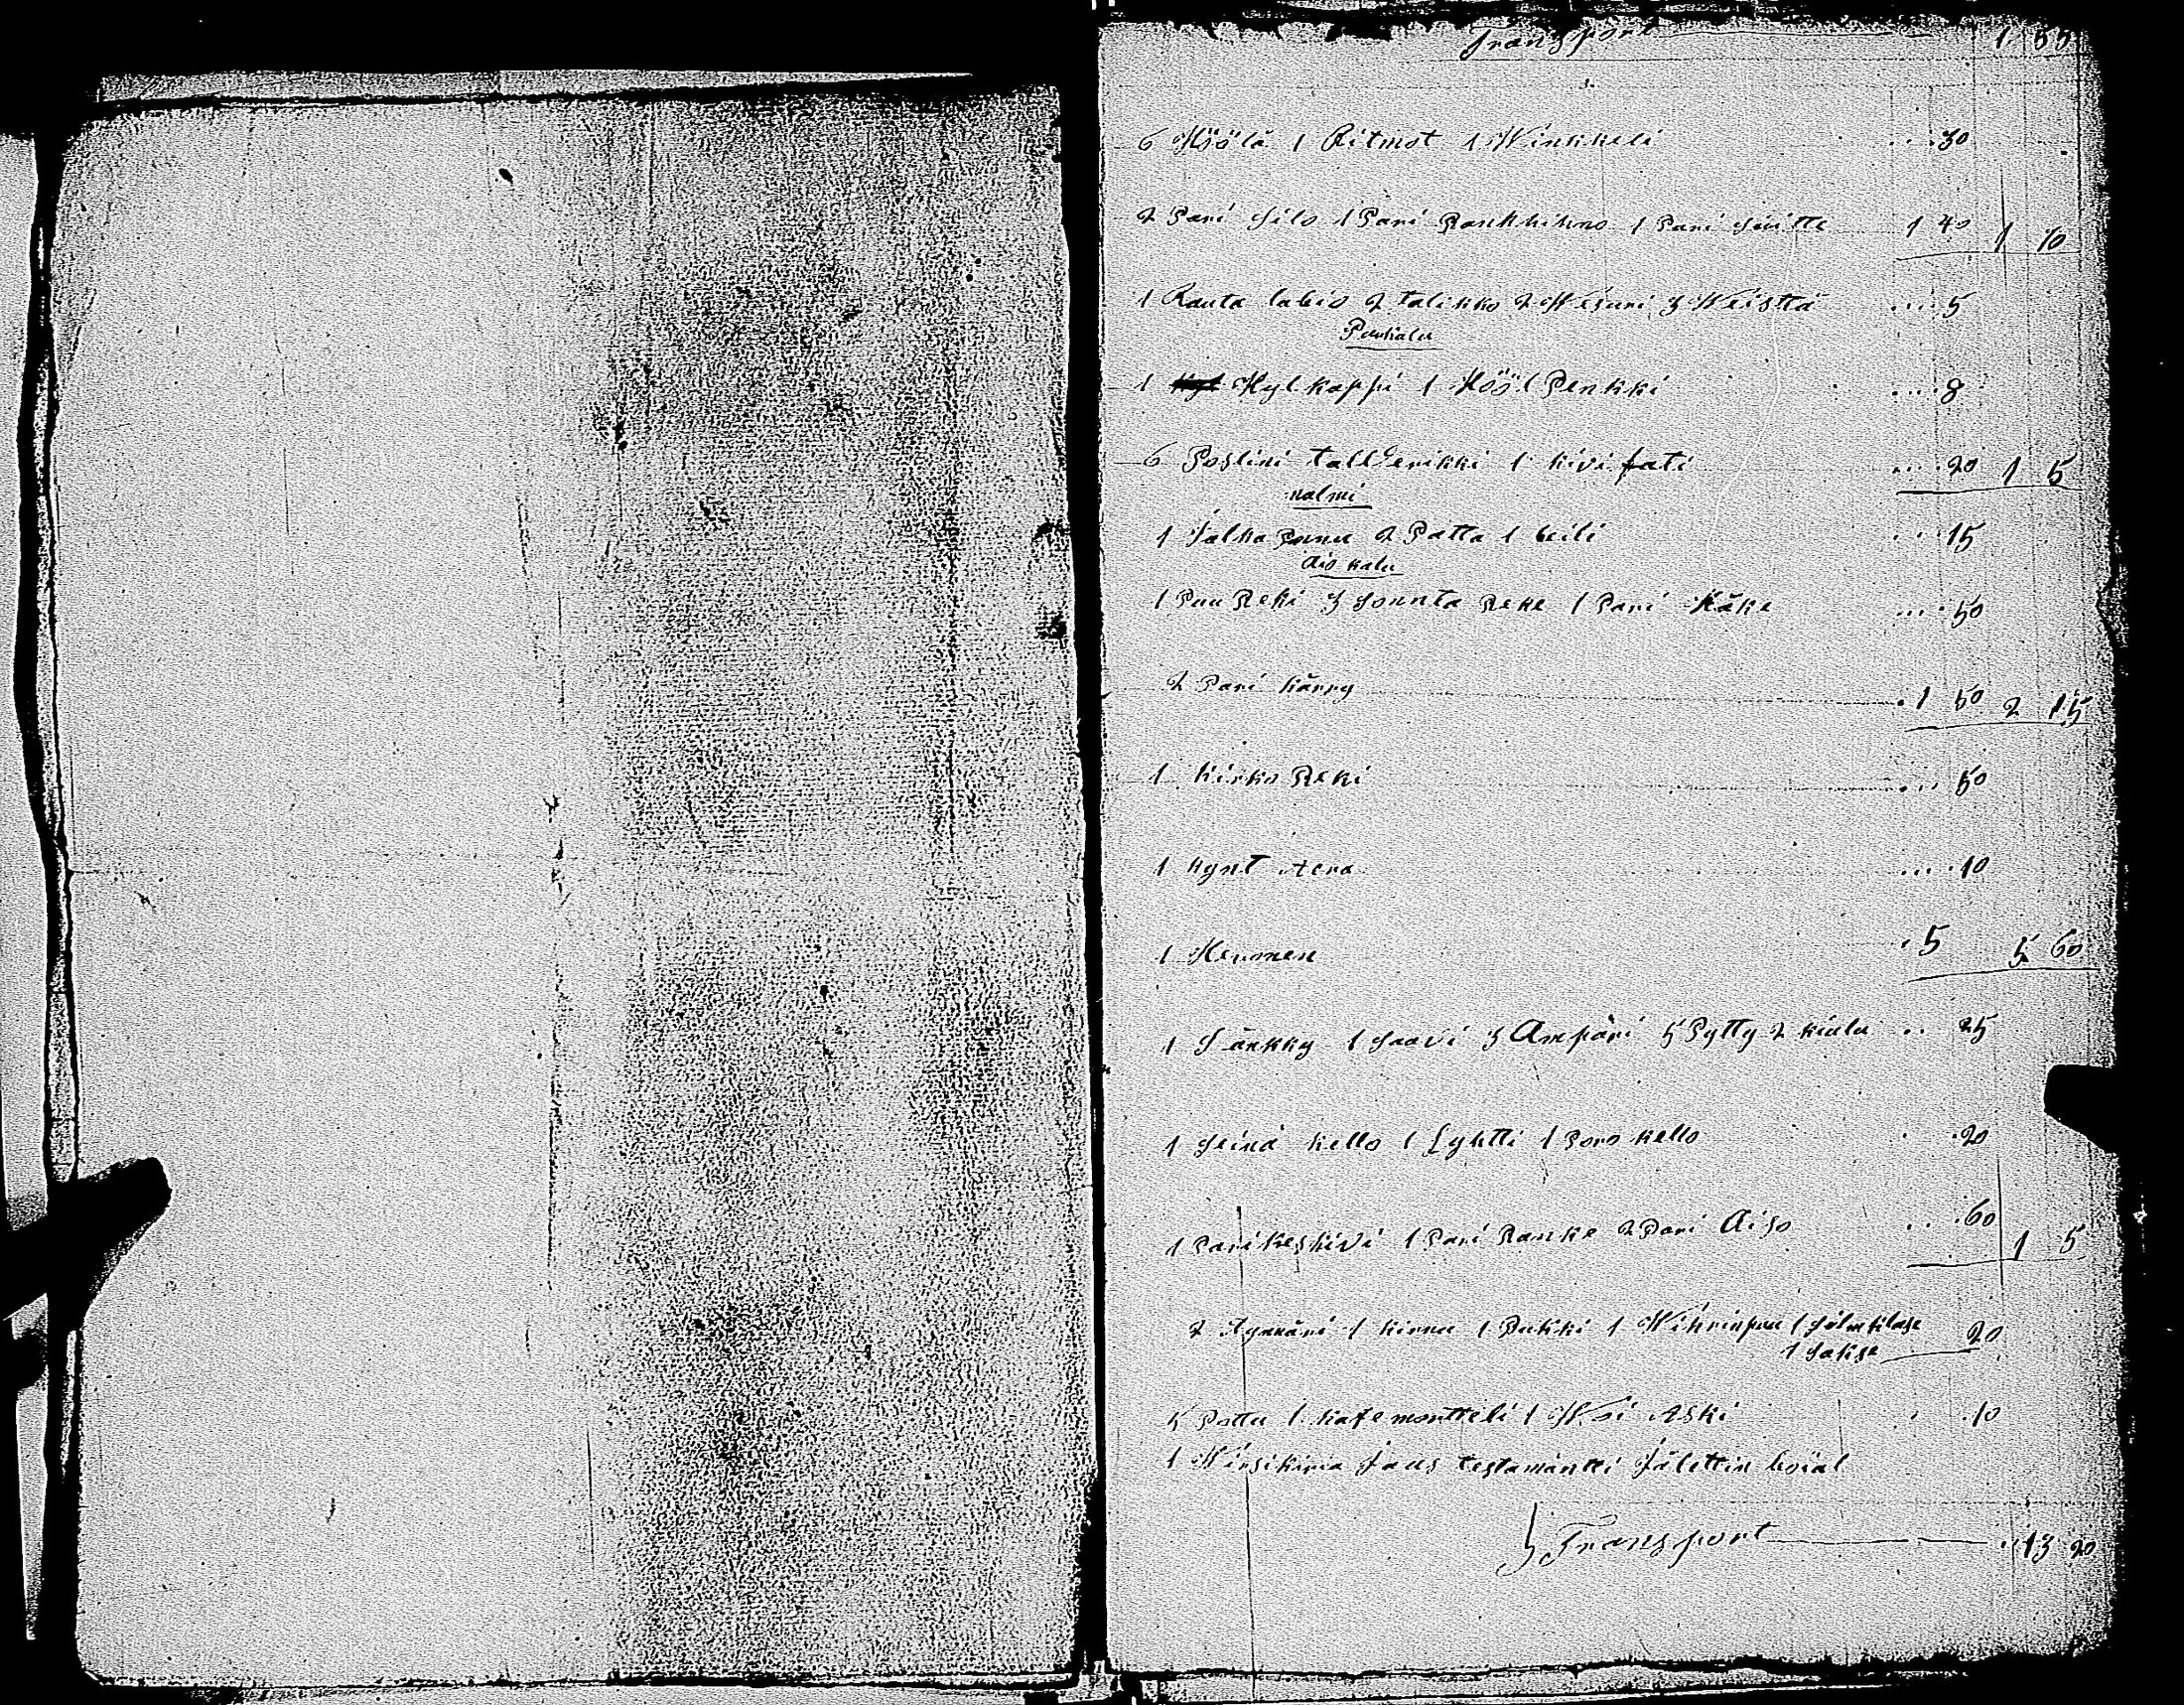 Transport 1 55
6 Höölä 1 Ritmot 1 Winkkeli ... 30
2 Pari Silo 1 Pari Rankkihno 1 Pari Suitte 1 40 1 70
1 Rauta labio 2 talikko 2 Wesuri 3 Weistä ... 5
Puukalu
1 Hylkappi 1 Höyl Penkki ... 8
6 Poslini tallderikki 1 kivi fati ... 20 1 5
malmi
1 Jalka Pannu 2 Patta 1 beili ... 15
Aio kalu
1 Puu Reki 3 Sonnta Reke 1 Pari Häke ... 50
2 Pari kärry 1 50 2 15
1 Kirko Reki ... 50
1 Kynt Atra ... 10
1 Hevonen 5 5 60
1 Sänkky 1 Saavi 3 Ampäri 5 Pytty 2 kiulu .. 25
1 Seinä kello 1 Lyhtti 1 Poro kello . . 20
1 Pari keskivi 1 Pari Ranke 2 Pari Aiso .. 60 1 5
2 1 kirnu 1 Pukki 1 Wihrinpuu 1 20
1 Sakse
5 Pottu 1 kafemontteli 1 Woi Aski . 10
1 Wirsikirja Jaus testamäntti
Transport .. 13 20